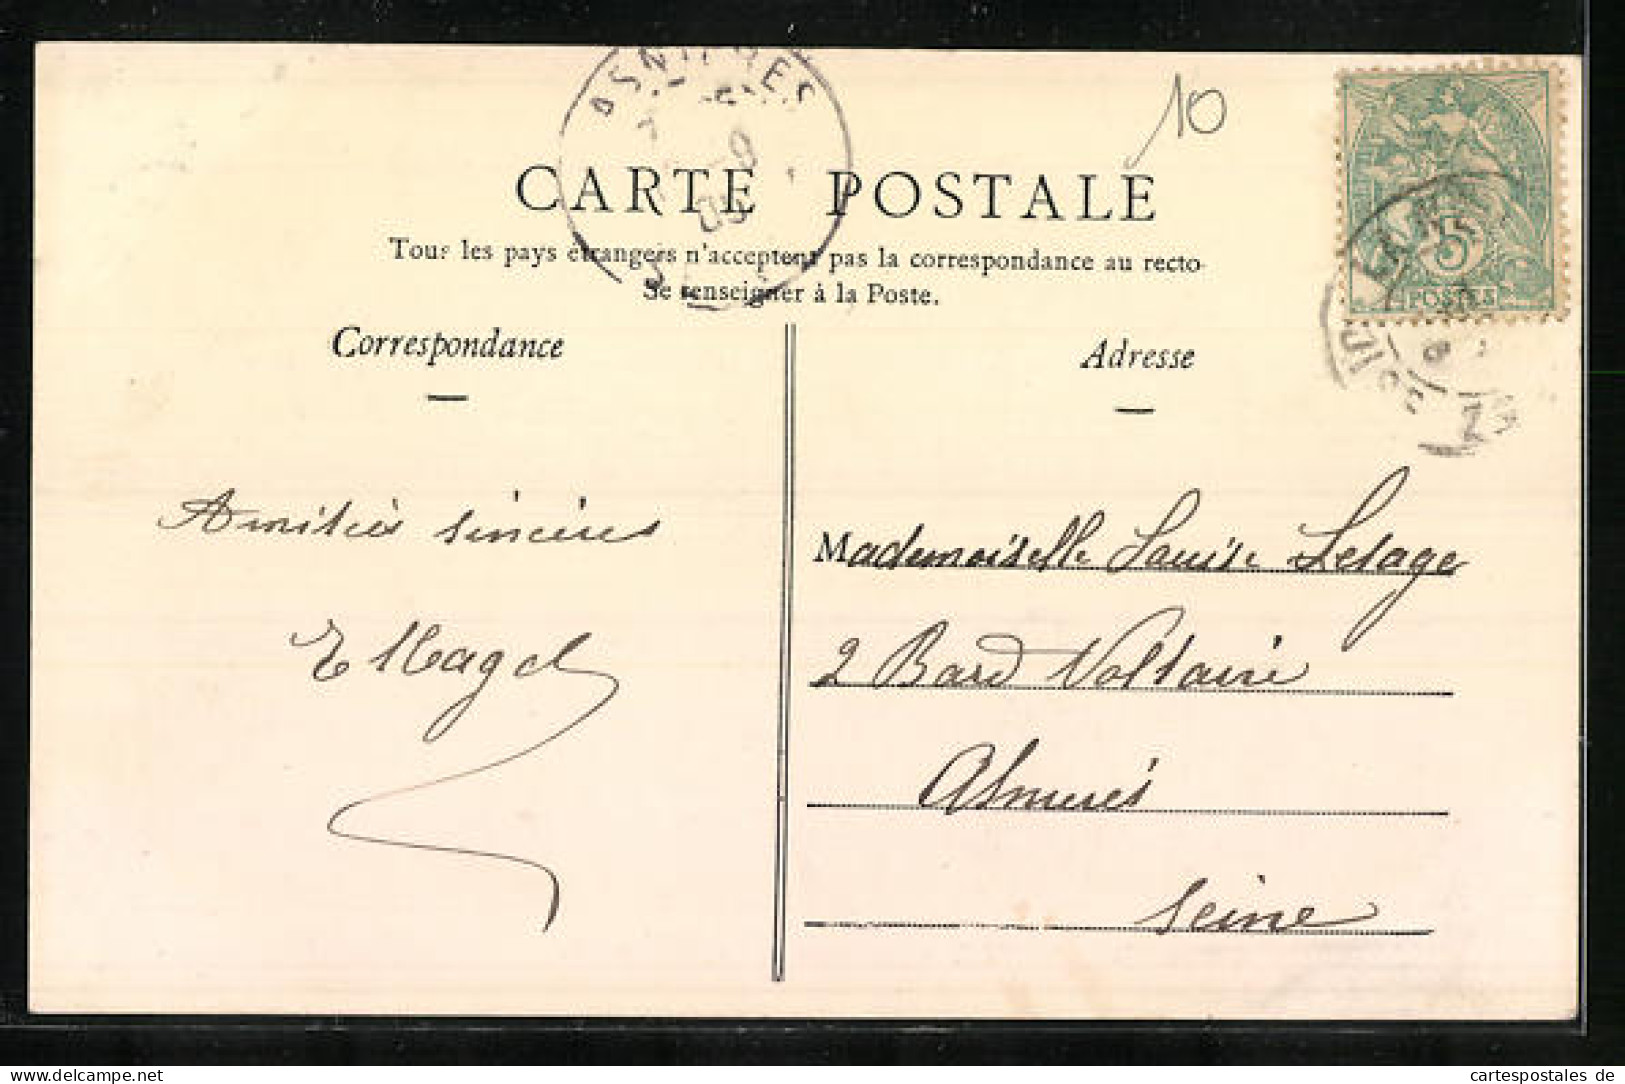 ASNIERES
10
CARTE POSTALE
Tous les pays étrangers n'acceptent pas la correspondance au recto
Se renseigner à la Poste.
5
POSTES
Correspondance
Adresse
Amitiés sincères
Mademoiselle Louise Lesage
2 Bard Voltaire
Asnieres
Seine
cartespostales de